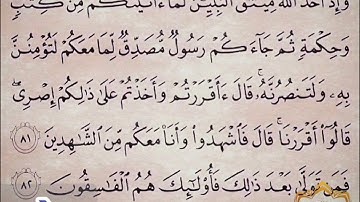 وَإِذْ أَخَذَ ٱللَّهُ مِيثَٰقَ ٱلنَّبِيِّـۧنَ لَمَآ ءَاتَيْتُكُم مِّن كِتَٰبٍ
وَحِكْمَةٍ ثُمَّ جَآءَكُمْ رَسُولٌ مُّصَدِّقٌ لِّمَا مَعَكُمْ لَتُؤْمِنُنَّ
بِهِۦ وَلَتَنصُرُنَّهُۥ ۚ قَالَ ءَأَقْرَرْتُمْ وَأَخَذْتُمْ عَلَىٰ ذَٰلِكُمْ إِصْرِى ۖ
قَالُوٓا۟ أَقْرَرْنَا ۚ قَالَ فَٱشْهَدُوا۟ وَأَنَا۠ مَعَكُم مِّنَ ٱلشَّٰهِدِينَ ٨١
فَمَن تَوَلَّىٰ بَعْدَ ذَٰلِكَ فَأُو۟لَٰٓئِكَ هُمُ ٱلْفَٰسِقُونَ ٨٢